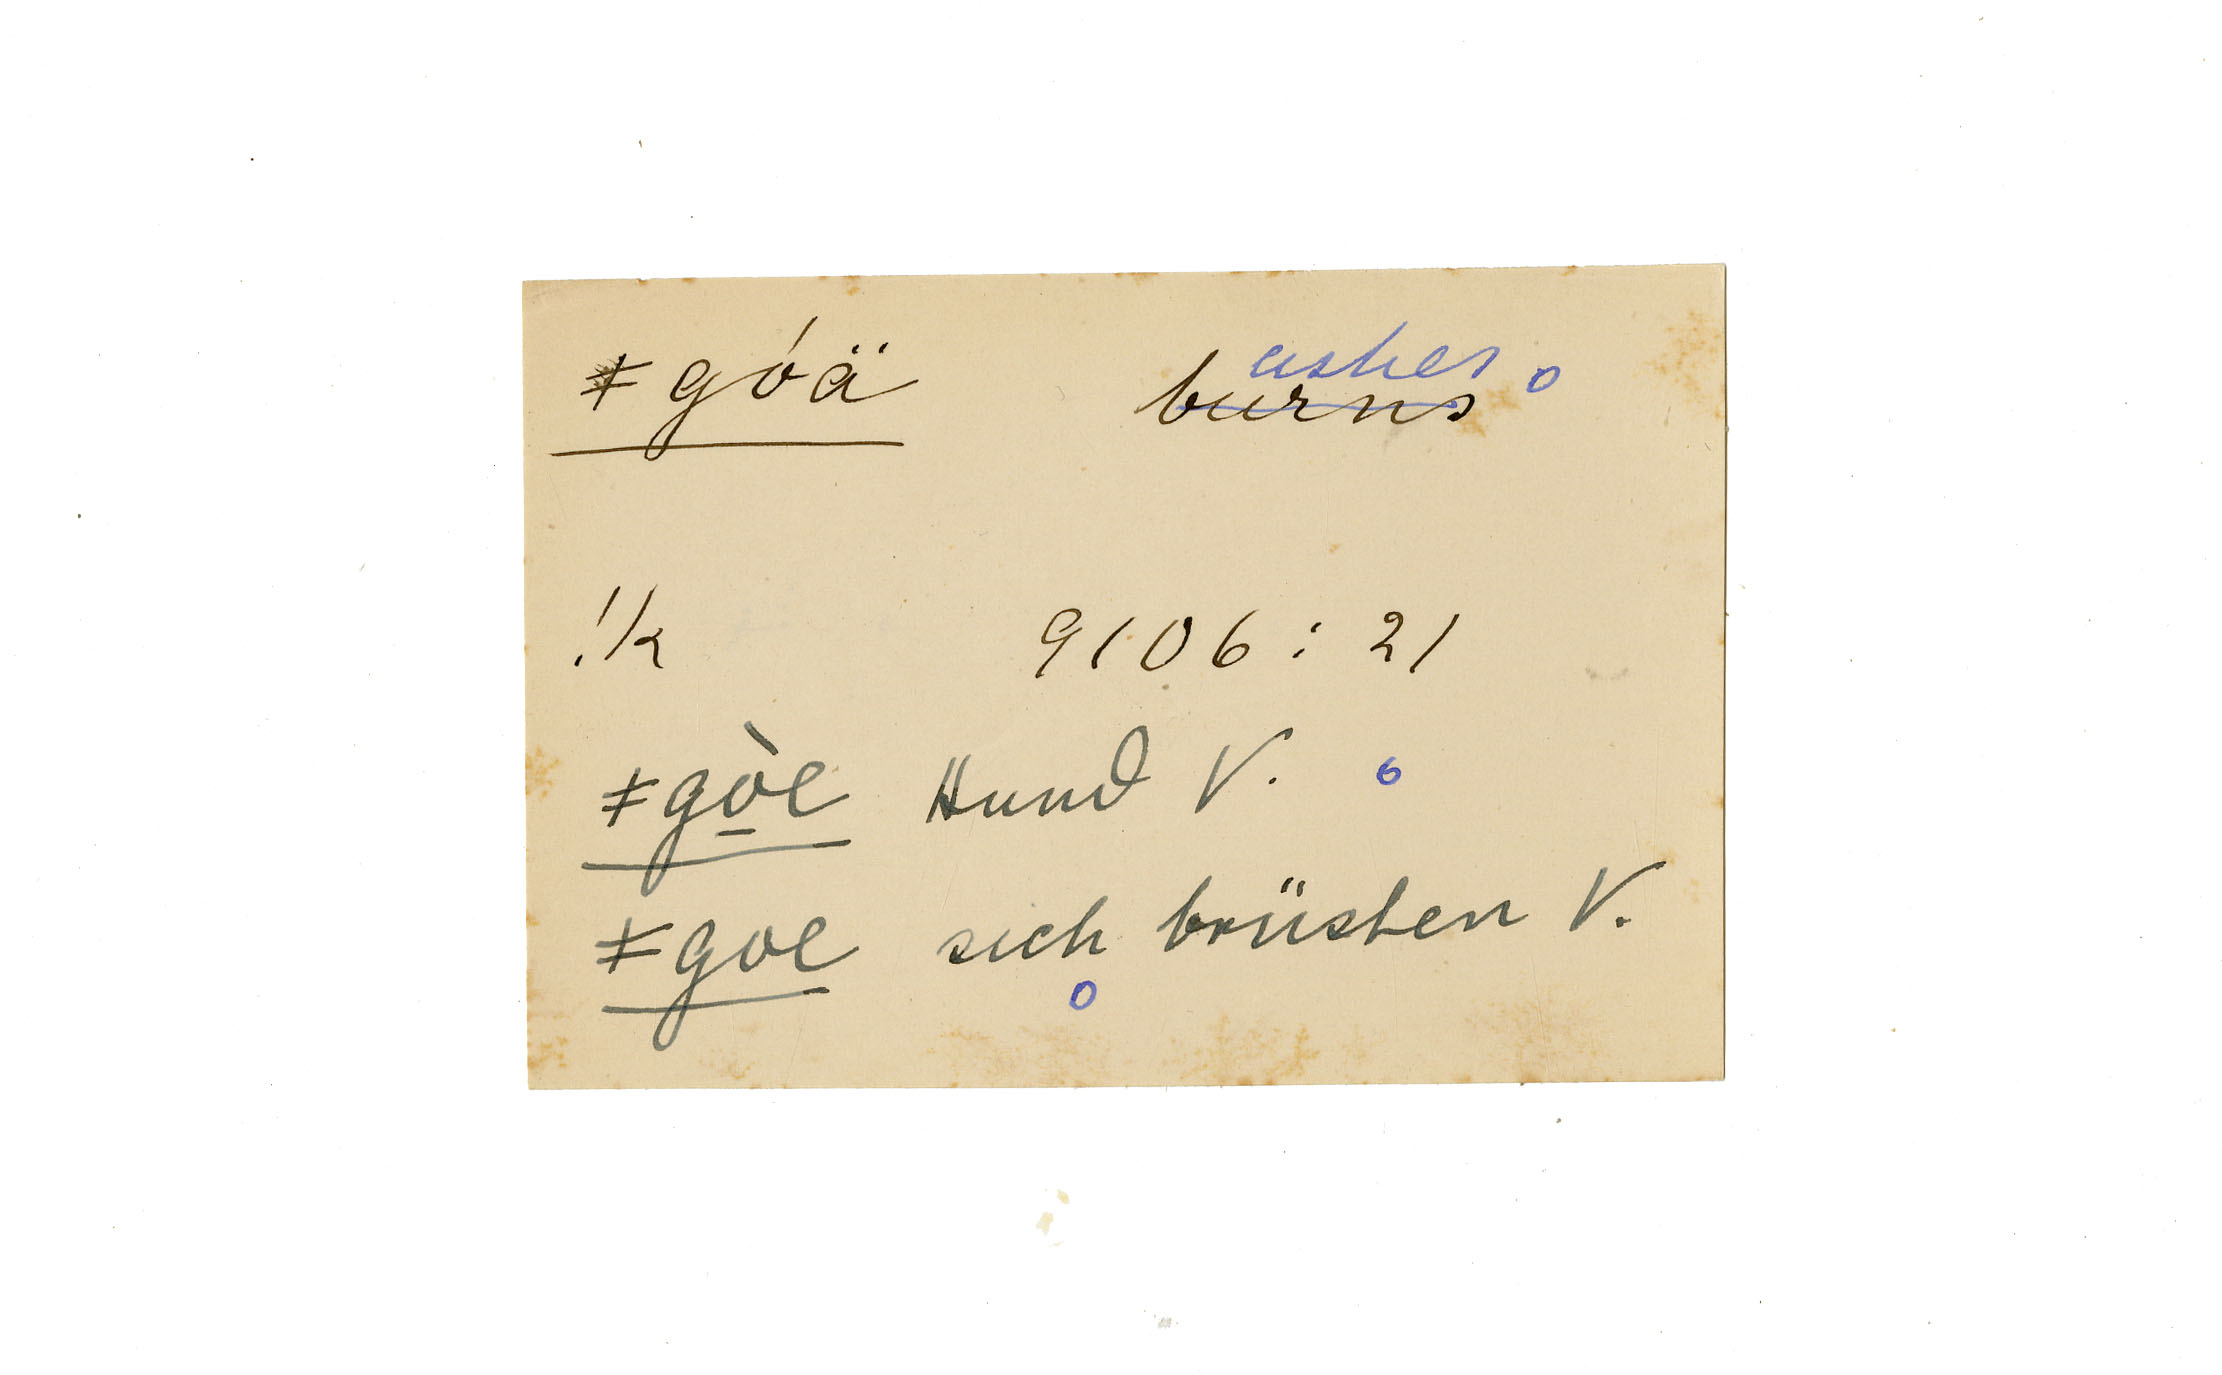 ǂgóä ashes o
burns
!k 9106:21
ǂgò̱e Hund V. o
ǂgoe sich brüsten V.
o